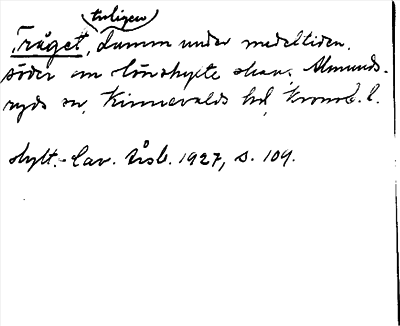 troligen
Tråget, damm under medeltiden.
söder om Lönshylte skav. Almunds-
ryds sn, Kinnevalds hd, Kronob. l.
Hylt.-Cav. Årsb. 1927, s. 109.